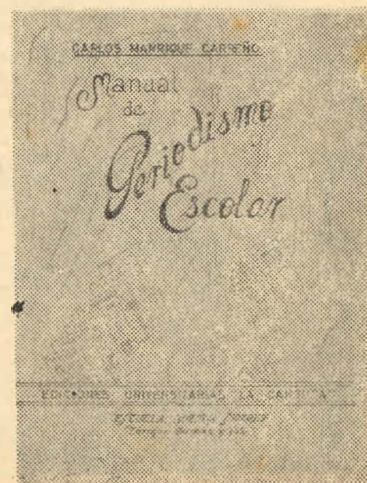 CARLOS MANRIQUE CARREÑO
Manual
de
Periodismo
Escolar
EDICIONES UNIVERSITARIAS LA CANTUTA
ESCUELA